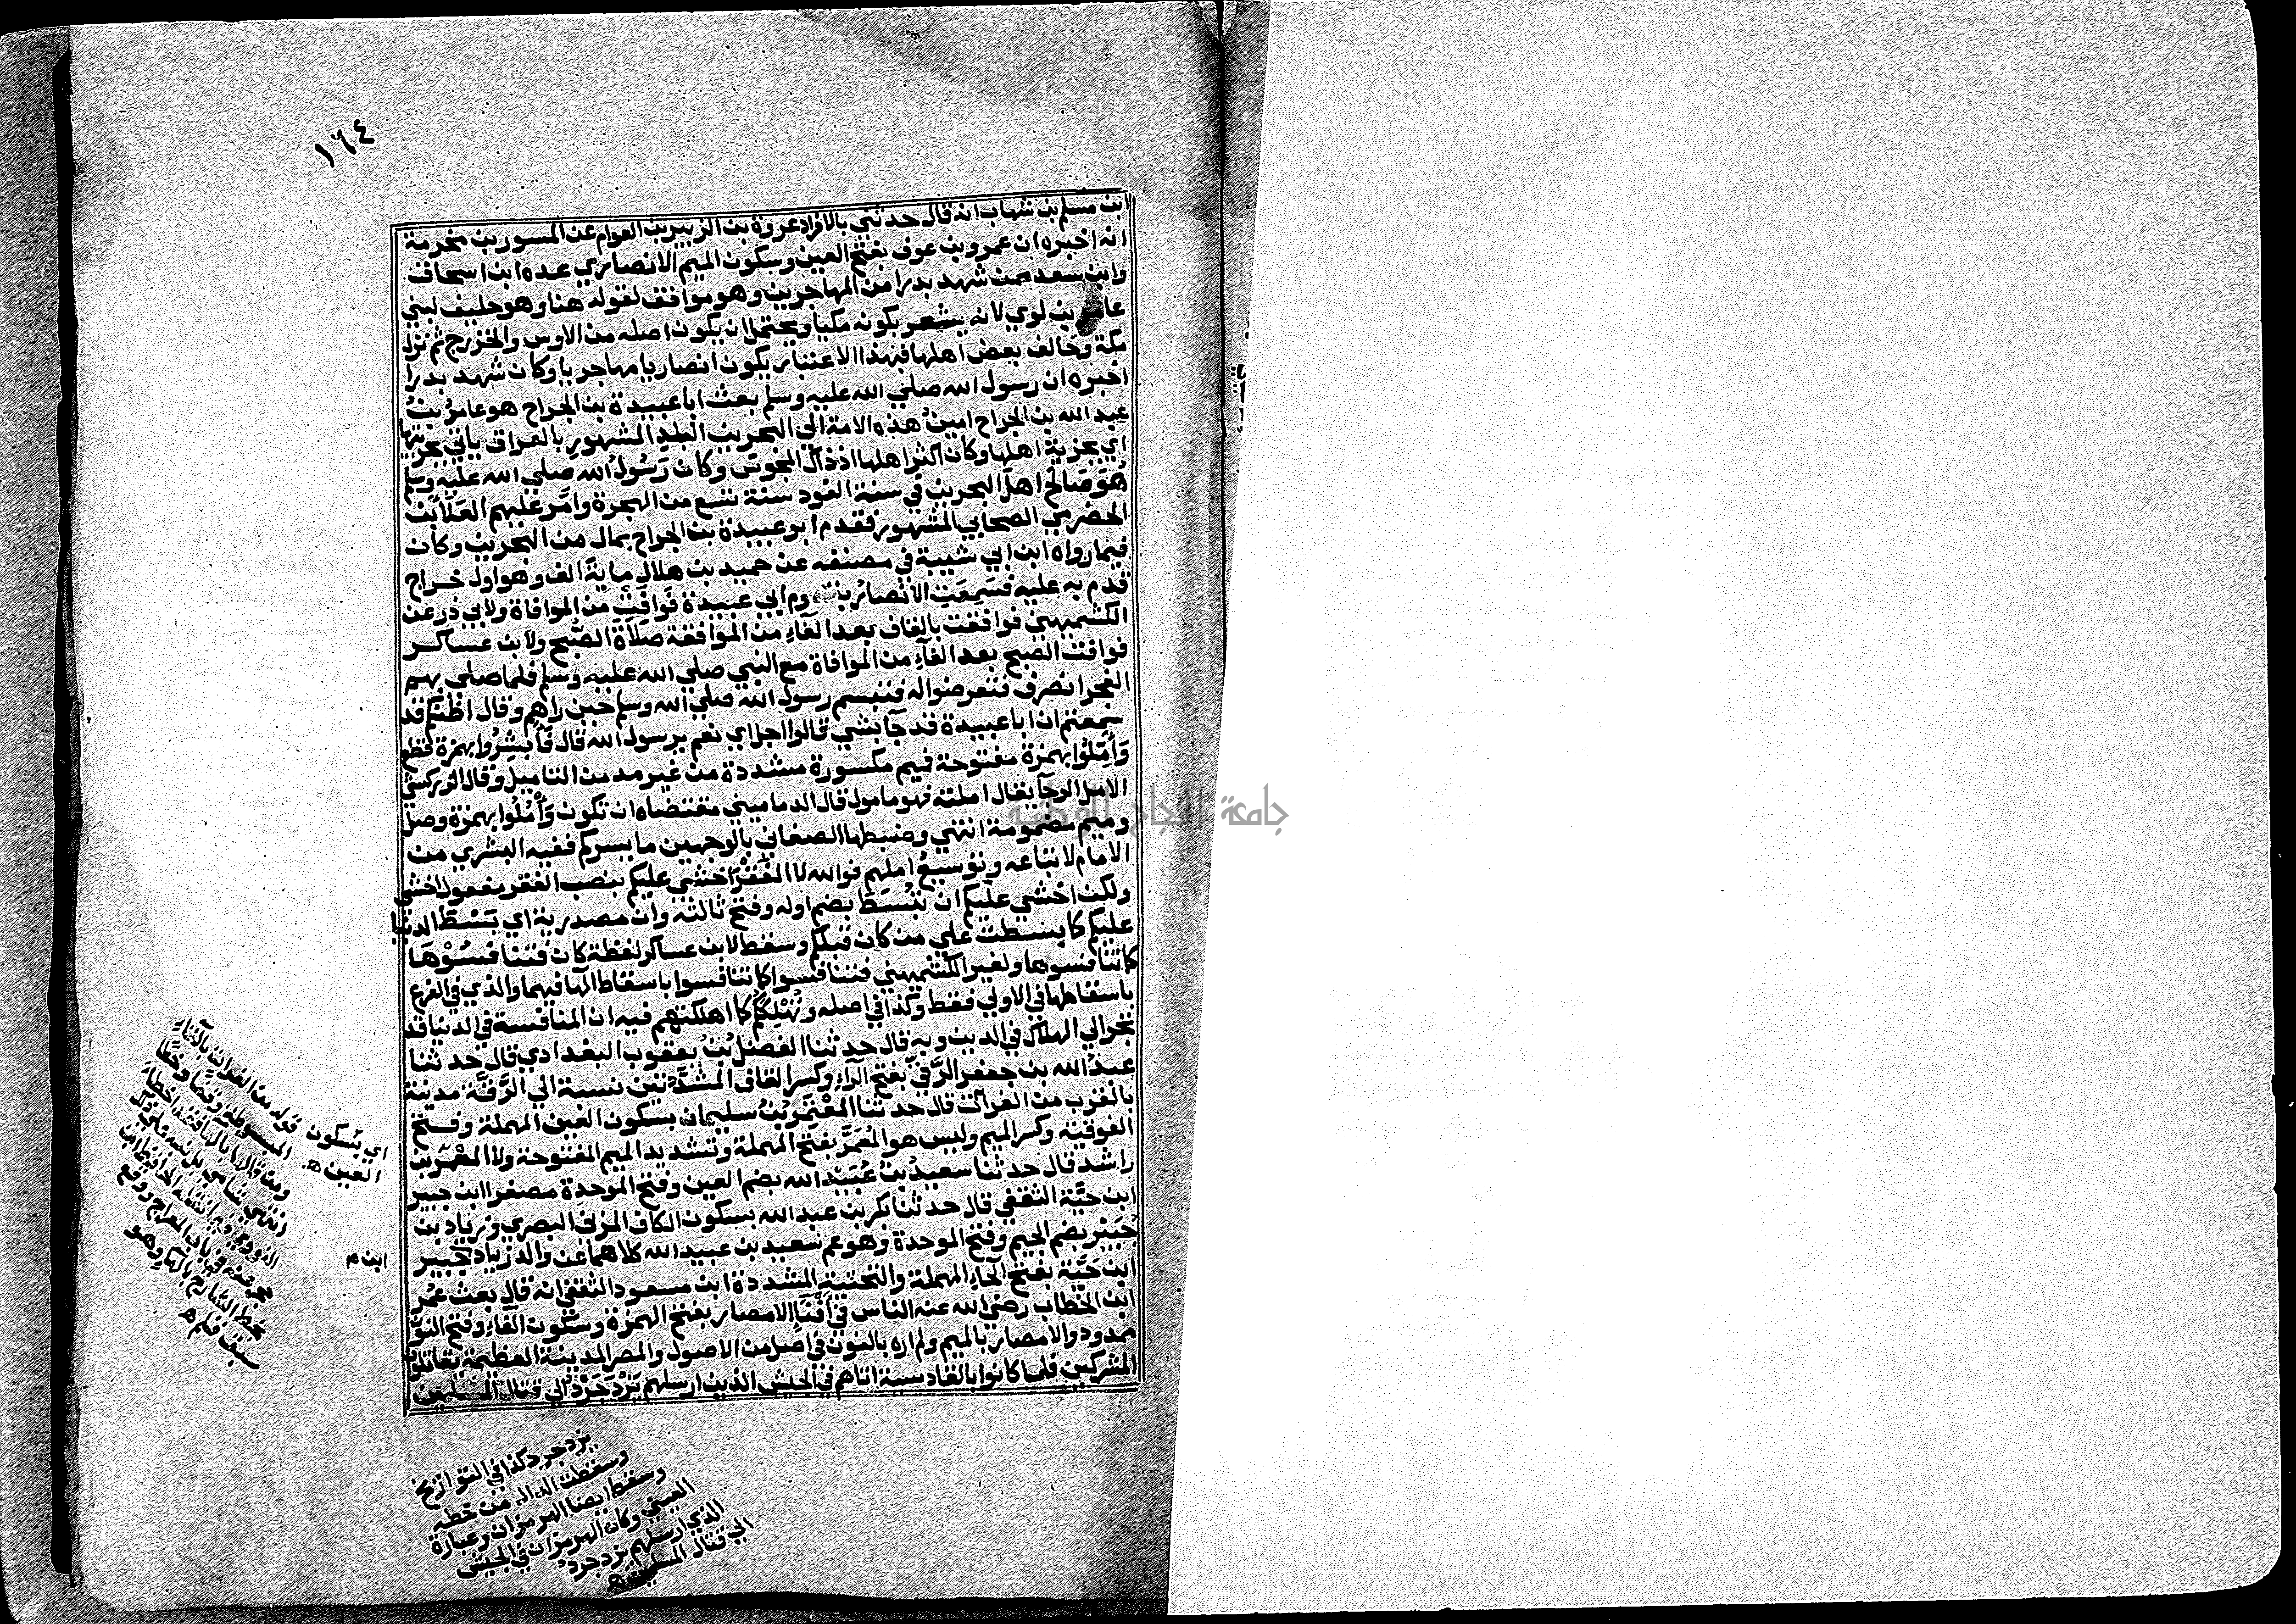 ١٦٤
ابن مسلم بن شهاب انه قال حدثني بالافراد عروة بن الزبير بن العوام عن المسور بن مخرمة
انه اخبره ان عمرو بن عوف بفتح العين وسكون الميم الانصاري عده ابن اسحاق
وابن سعد ممن شهد بدرا من المهاجرين وهو موافق لقوله هنا وهو حليف لبني
عامر بن لوي لانه يشعر بكونه مكيا ويحتمل ان يكون اصله من الاوس والخزرج ثم نزل
مكة وخالف بعض اهلها فبهذا الاعتبار يكون انصاريا مهاجريا وكان شهد بدرا
اخبره ان رسول الله صلي الله عليه وسلم بعث ابا عبيدة بن الجراح هو عامر بن
عبد الله بن الجراح امين هذه الامة الي البحرين البلد المشهور بالعراق ياتي بجزيتها
اي بجزية اهلها وكان اكثر اهلها اذ ذاك المجوس وكان رسول الله صلي الله عليه وسلم
هو صالح اهل البحرين في سنة الفود سنة تسع من الهجرة وامر عليهم العلا بن
الحضرمي الصحابي المشهور فقدم ابو عبيدة بن الجراح بمال من البحرين وكان
فيما رواه ابن ابي شيبة في مصنفه عن حميد بن هلال ماية الف وهو اول خراج
قدم به عليه فسمعت الانصار بقدوم ابي عبيدة فوافت من الموافاة ولابي ذر عن
الكشميهني فوافقت بالقاف بعد الفاء من الموافقة صلاة الصبح ولابن عساكر
فوافت الصبح بعد الفاء من الموافاة مع النبي صلي الله عليه وسلم فلما صلي بهم
الفجر انصرف فتعرضوا له فتبسم رسول الله صلي الله وسلم حين راهم وقال اظنكم قد
سمعتم ان ابا عبيدة قد جآ بشي قالوا اجل اي نعم يرسول الله قال فابشروا بهمزة قطع
وأمّلوا بهمزة مفتوحة فيم مكسورة مشددة من غير مد من التاميل وقال الزركشي
الامل الرجآ يقال املته فهو مامول قال الدماميني مقتضاه ان تكون وأملوا بهمزة وصل
وميم مضمومة انتهي وضبطها الصغاني بالوجهين ما يسركم ففيه البشري من
الامام لاتباعه وتوسيع املهم فوالله لا الفقر اخشي عليكم بنصب الفقر مفعول اخشي
ولكن اخشي عليكم ان تبسط بضم اوله وفتح ثالثه وان مصدرية اي بسط الدنيا
عليكم كما بسطت علي من كان قبلكم وسقط لابن عساكر لفظة كان فتنافسوها
كما تنافسوها ولغير الكشميهني فتنافسوا كما تنافسوا باسقاط الها فيهما والذي في الفرع
باسقاطها في الاولي فقط وكذا في اصله وتهلككم كما اهلكتهم فيه ان المنافسة في الدنيا قد
تجر الي الهلاك في الدين وبه قال حدثنا الفضل بن يعقوب البغدادي قال حدثنا
عبد الله بن جعفر الرقي بفتح الراء وكسر القاف المشددتين نسبة الي الرقة مدينة
بالقرب من الفرات قال حدثنا المعتمر بن سليمان بسكون العين المهملة وفتح
الفوقية وكسر الميم وليس هو المعمر بفتح المهملة وتشديد الميم المفتوحة ولا المعمر بن
راشد قال حدثنا سعيد بن عبيد الله بضم العين وفتح الموحدة مصغرا ابن جبير
ابن حية الثقفي قال حدثنا بكر بن عبد الله بسكون الكاف المزني البصري وزياد بن
جبير بضم الجيم وفتح الموحدة وهو عم سعيد بن عبيد الله كلاهما عن والد زياد جبير
ابن حية بفتح الحاء المهملة والتحتية المشددة ابن مسعود الثقفي انه قال بعث عمر
ابن الخطاب رضي الله عنه الناس في أفنآ الامصار بفتح الهمزة وسكون الفاء وفتح النون
ممدود والامصار بالميم ولم اره بالنون في اصل من الاصول والمصر المدينة العظيمة يقاتلون
المشركين فلما كانوا بالقادسية اتاهم في الجيش الذين ارسلهم يزدجرد الي قتال المسلمين
اي بسكون
العين ه
قوله من الفرات بالتاء
المبسوطة وقفا وخطا
ومن قالها بالها فقد اخطا
ابن م
يزدجرد كذا في التواريخ
وسقطت الدال من خطه
وسقط ايضا الهرمزان وعبارة
العيني وكان الهرمزان في الجيش
الذي ارسلهم يزدجرد
الي قتال المسلمين ه
جامعة النجاح الوطنية